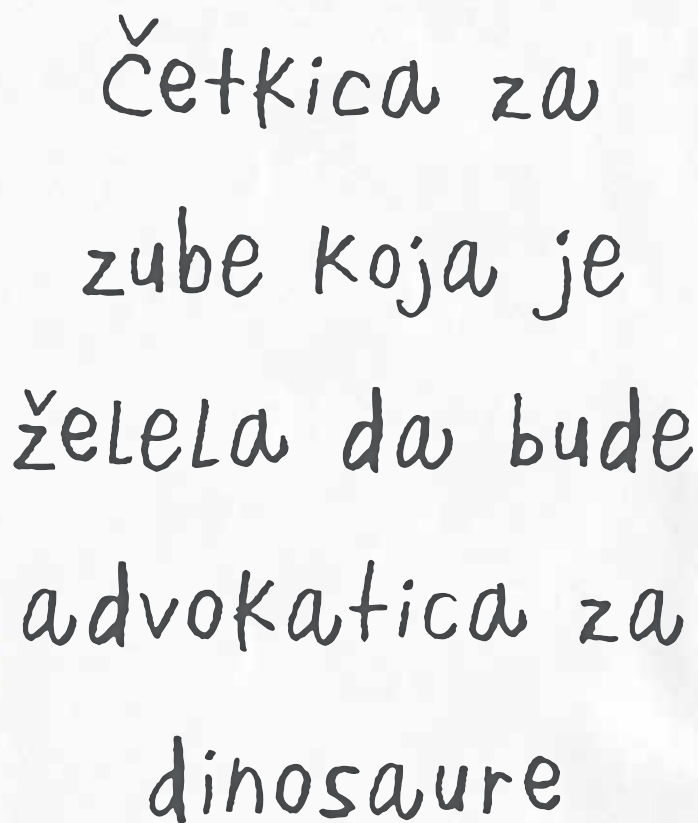 Četkica za
zube koja je
želela da bude
advokatica za
dinosaure